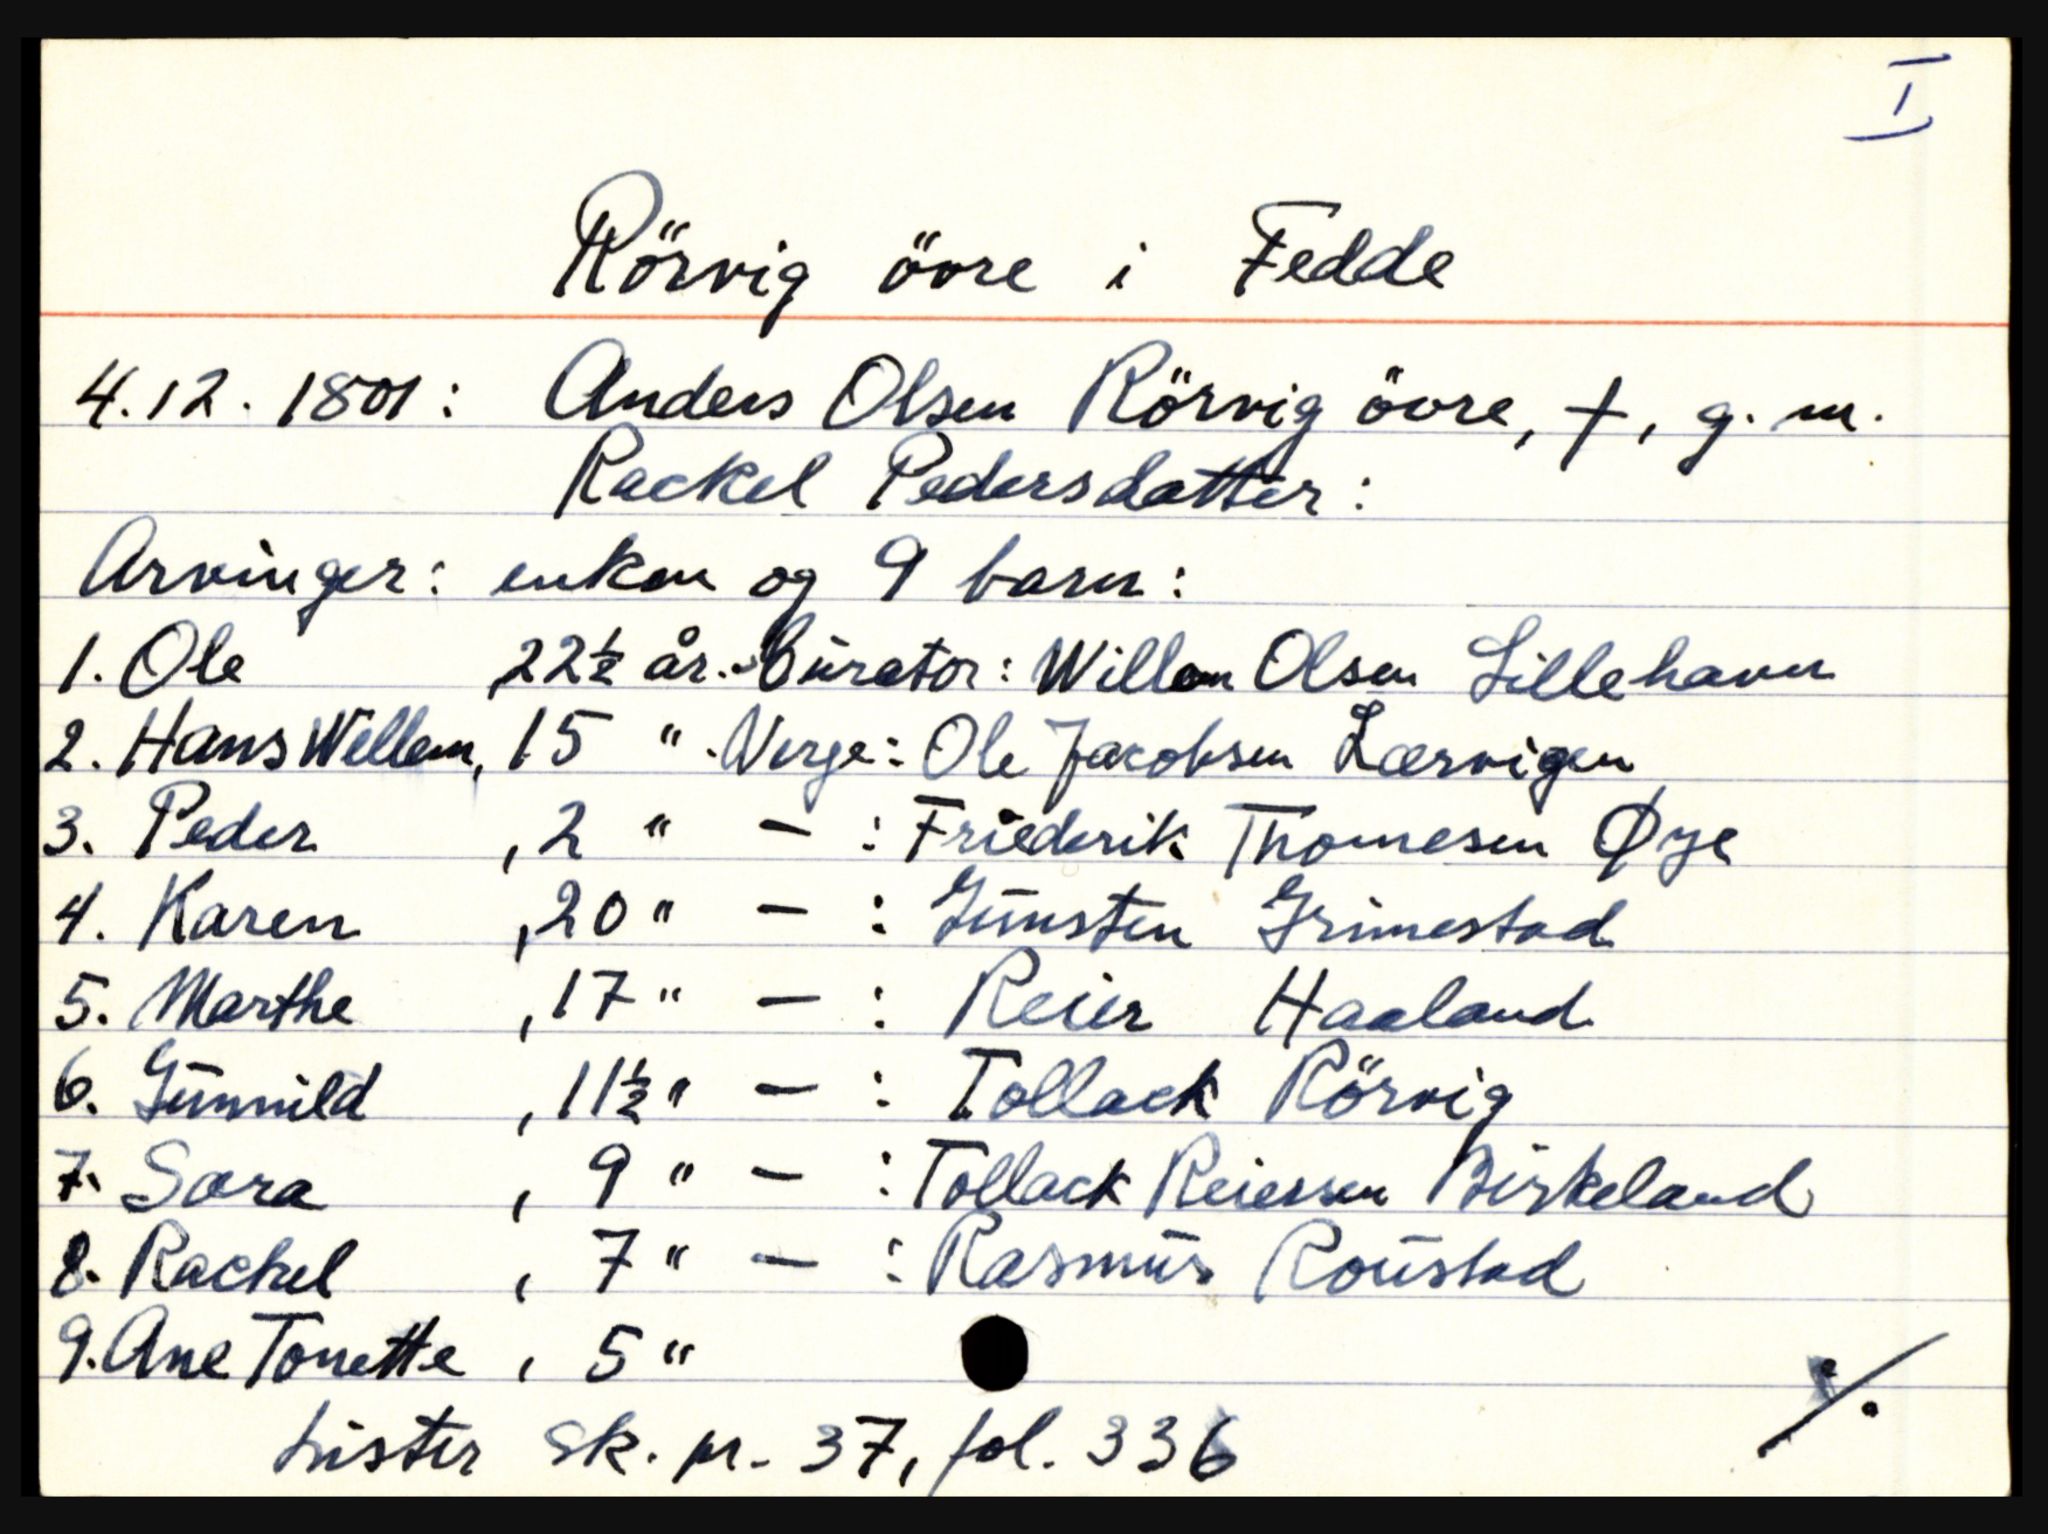 I
Rörvig övre i Fedde
4.12.1801: Anders Olsen Rörvig övre, †, g. m.
Rackel Pedersdatter:
Arvinger: enken og 9 barn:
1. Ole ,22½ år. Curator: Willem Olsen Lillehavn
2. Hans Willem, 15 " . Verge: Ole Jacobsen Lærvigen
3. Peder , 2 " — : Friederik Thomesen Øye
4. Karen , 20 " — : Gunsten Grimestad
5. Marthe , 17 " — : Reier Haaland
6. Gunnild , 11½ " — : Tollack Rörvig
7. Sara , 9 " — : Tollack Reiersen Birkeland
8. Rachel , 7 " — : Rasmus Roustad
9. Ane Tonette , 5 "
Lister sk. pr. 37, fol. 336
./.